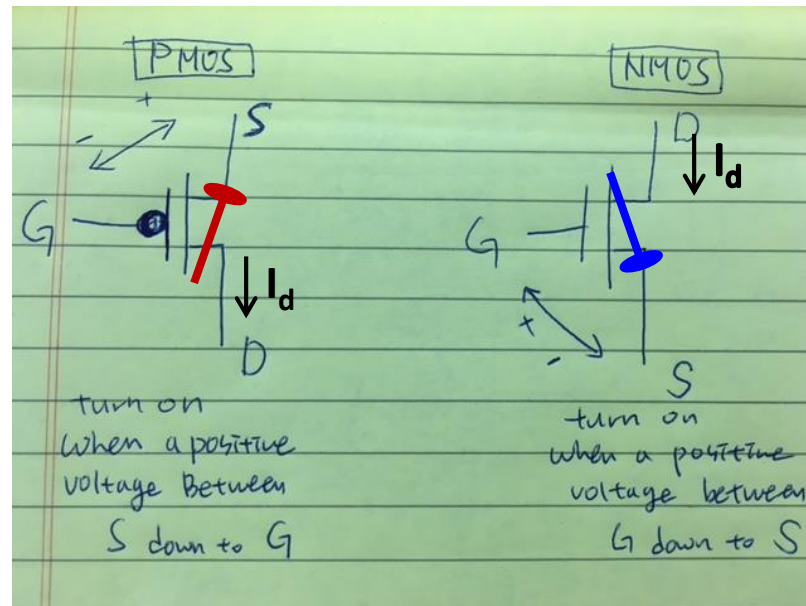 PMOS
NMOS
+
-
S
D
I_d
G
G
I_d
+
-
D
S
turn on
when a positive
voltage Between
S down to G
turn on
when a positive
voltage between
G down to S